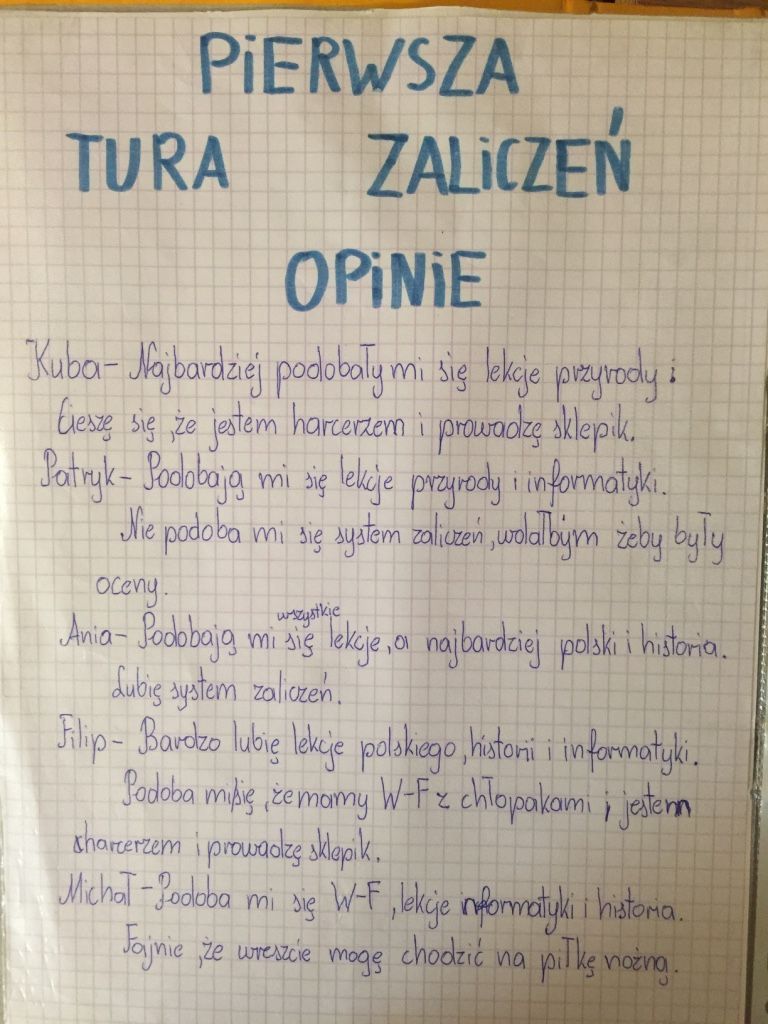 PiERWSZA
TURA ZALiCZEŃ
OPiNiE
Kuba- Najbardziej podobały mi się lekcje przyrody i
Cieszę się, że jestem harcerzem i prowadzę sklepik.
Patryk- Podobają mi się lekcje przyrody i informatyki.
Nie podoba mi się system zaliczeń, wolałbym żeby były
oceny.
wszystkie
Ania- Podobają mi się lekcje, a najbardziej polski i historia.
Lubię system zaliczeń.
Filip- Bardzo lubię lekcje polskiego, historii i informatyki.
Podoba mi się, że mamy W-F z chłopakami i jestem
harcerzem i prowadzę sklepik.
Michał- Podoba mi się W-F, lekcje informatyki i historia.
Fajnie, że wreszcie mogę chodzić na piłkę nożną.